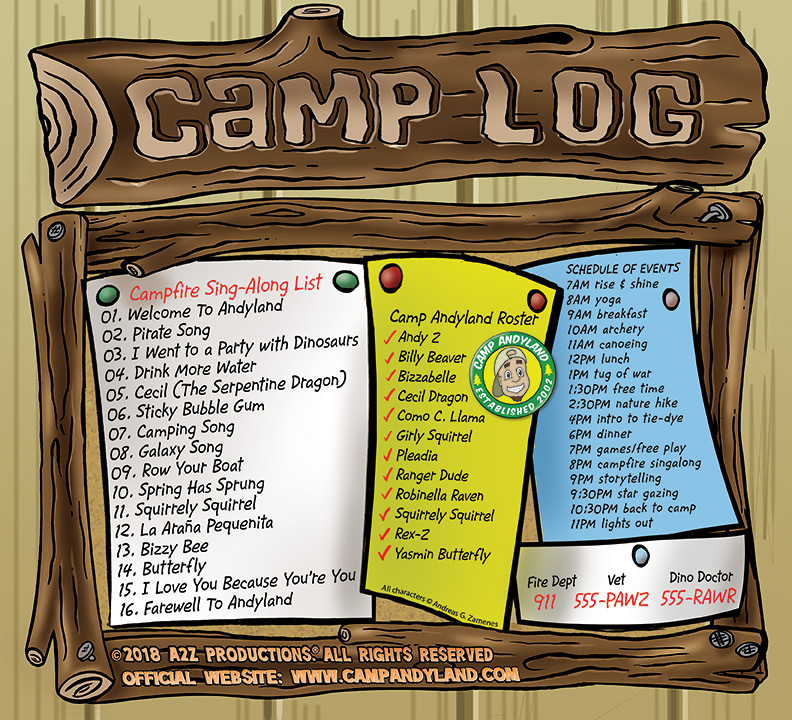 CAMP LOG
Campfire Sing-Along List
01. Welcome To Andyland
02. Pirate Song
03. I Went to a Party with Dinosaurs
04. Drink More Water
05. Cecil (The Serpentine Dragon)
06. Sticky Bubble Gum
07. Camping Song
08. Galaxy Song
09. Row Your Boat
10. Spring Has Sprung
11. Squirrely Squirrel
12. La Araña Pequenita
13. Bizzy Bee
14. Butterfly
15. I Love You Because You're You
16. Farewell To Andyland
Camp Andyland Roster
✓ Andy Z
✓ Billy Beaver
✓ Bizzabelle
✓ Cecil Dragon
✓ Como C. Llama
✓ Girly Squirrel
✓ Pleadia
✓ Ranger Dude
✓ Robinella Raven
✓ Squirrely Squirrel
✓ Rex-Z
✓ Yasmin Butterfly
All characters © Andreas G. Zamenes
CAMP ANDYLAND
ESTABLISHED 2002
SCHEDULE OF EVENTS
7AM rise & shine
8AM yoga
9AM breakfast
10AM archery
11AM canoeing
12PM lunch
1PM tug of war
1:30PM free time
2:30PM nature hike
4PM intro to tie-dye
6PM dinner
7PM games/free play
8PM campfire singalong
9PM storytelling
9:30PM star gazing
10:30PM back to camp
11PM lights out
Fire Dept Vet Dino Doctor
911 555-PAWZ 555-RAWR
©2018 A2Z PRODUCTIONS.® ALL RIGHTS RESERVED
OFFICIAL WEBSITE: WWW.CAMPANDYLAND.COM